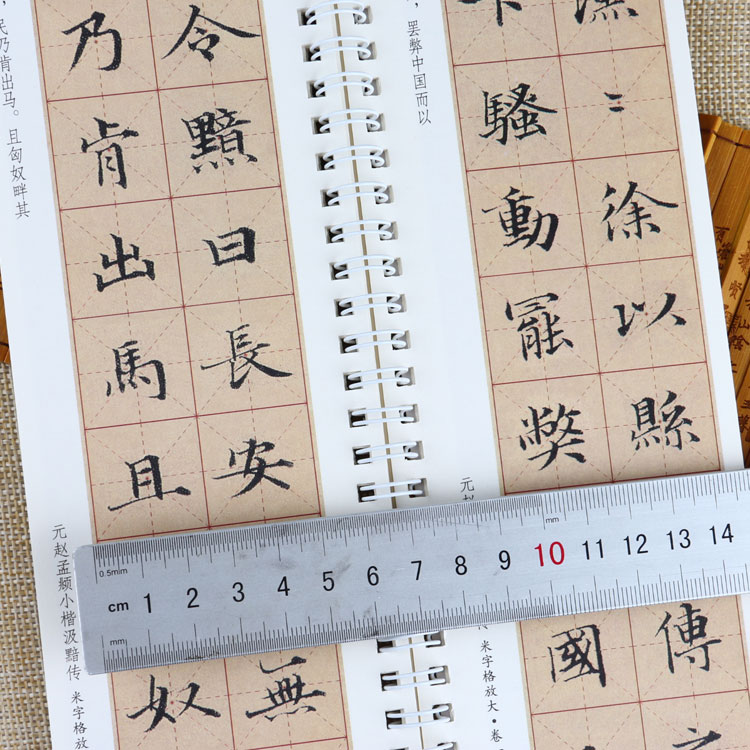 漢〻徐以縣
傳
下騷動罷弊
國
，罢弊中国而以
元赵
传 米字格放大·卷
令黯曰長安
無
乃肯出馬且
奴
民乃肯出马。且匈奴畔其
元赵孟頫小楷汲黯传 米字格放
0.5mm
mm
cm 1 2 3 4 5 6 7 8 9 10 11 12 13 14
mm